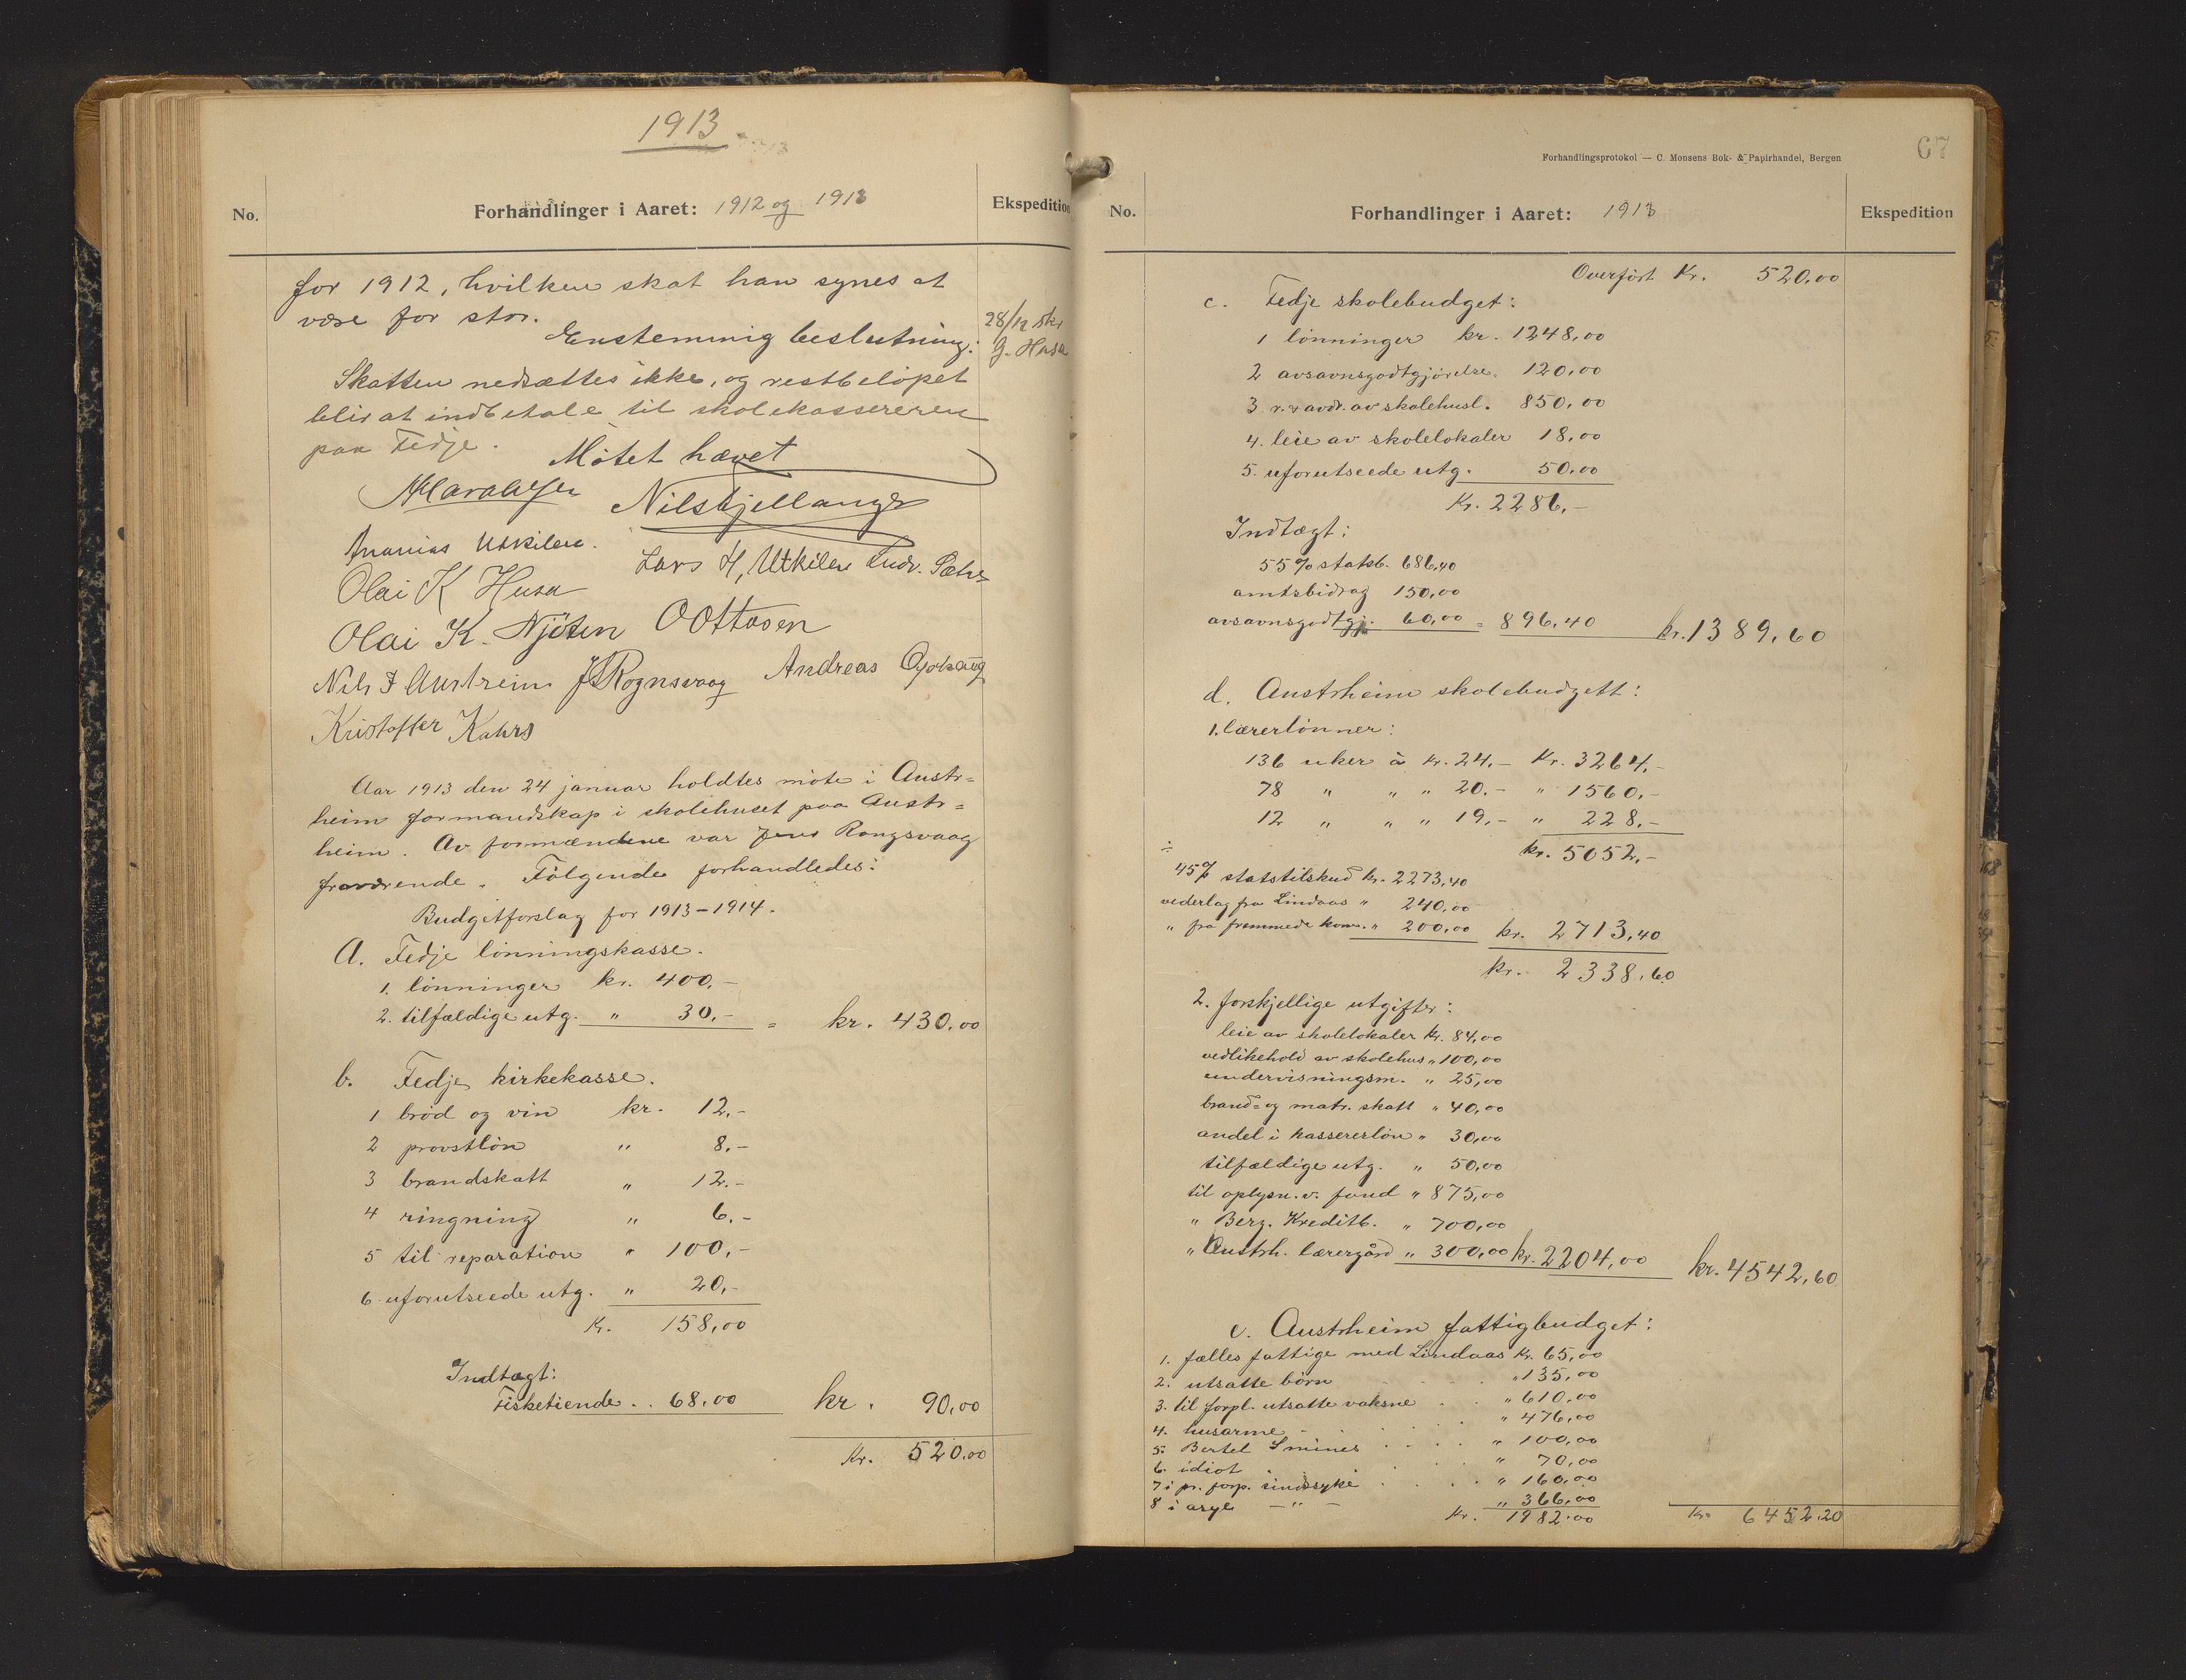 1913
No.
Forhandlinger i Aaret: 1912 og 1913
Ekspedition
for 1912, hvilken skat han synes at
være for stor.
Enstemmig beslutning:
28/12 skr
G. Husa
Skatten nedsættes ikke, og restbeløpet
blir at indbetale til skolekassereren
paa Fedje.
Møtet hævet
Nils Kjellanger
Ananias Utkilen.
Lars H, Utkilen Ludv. Sæhe
Olai K Husa
Olai K. Njøten O Ottosen
Nils I Austreim J Rognsvaag Andreas
Kristoffer Kahrs
Aar 1913 den 24 januar holdtes møte i Austr=
heim formandskap i skolehuset paa Austr=
heim. Av formændene var Jens Rongsvaag
fraværende. Følgende forhandledes:
Budgetforslag for 1913-1914.
A. Fedje lønningskasse.
1. lønninger kr. 400,-
2. tilfældige utg. " 30,- = kr. 430,00
b. Fedje kirkekasse.
1 brød og vin kr. 12,-
2 provstløn " 8,-
3 brandskatt " 12.-
4 ringning " 6,-
5 til reparation " 100,-
6 uforutseede utg. " 20,-
Kr. 158,00
Indtægt:
Fisketiende . . 68,00 kr. 90,00
Kr. 520,00
67
Forhandlingsprotokol — C. Monsens Bok- & Papirhandel, Bergen
No.
Forhandlinger i Aaret: 1913
Ekspedition
Overført Kr. 520,00
c. Fedje skolebudget:
1 lønninger kr. 1248,00
2 avsavnsgodtgjørelse. 120,00
3 r. & avdr. av skolehusl. 850,00
4. leie av skolelokaler 18,00
5. uforutseede utg. 50,00
Kr. 2286,-
Indtægt:
55% statsb. 686,40
amtsbidrag 150,00
avsavnsgodtgj. 60,00 = 896,40 kr. 1389,60
d. Austrheim skolebudgett:
1. lærerlønner:
136 uker à kr. 24.- Kr. 3264,-
78 " " " 20.- " 1560,-
12 " " " 19,- " 228.-
kr. 5052,-
÷
45% statstilskud kr. 2273,40
vederlag fra Lindaas " 240,00
" fra fremmede kom. " 200,00 kr. 2713,40
kr. 2338,60
2. forskjellige utgifter:
leie av skolelokaler kr. 84,00
vedlikehold av skolehus " 100,00
undervisningsm. " 25,00
brand= og matr. skatt " 40,00
andel i kassererløn " 30,00
tilfældige utg. " 50,00
til oplysn. v. fond " 875,00
" Berg. Kreditb. " 700,00
" Austrh. lærergård " 300,00 kr. 2204,00 kr. 4542,60
e. Austrheim fattigbudget:
1. fælles fattige med Lindaas kr. 65,00
2. utsatte børn " 135,00
3. til forpl. utsatte voksne . . " 610,00
4. husarme . . . " 476,00
5. Bertel Smines . . . . " 100,00
6. idiot . . . " 70,00
7 i pr. forp. sindssyke . . . . " 160,00
8 i asyl - " - " 366,00
Kr. 1982.00 Kr. 6452.20